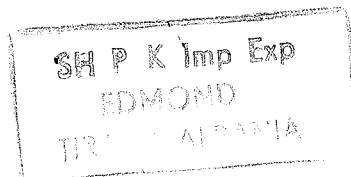 SH P K Imp Exp
EDMOND
ALBANIA